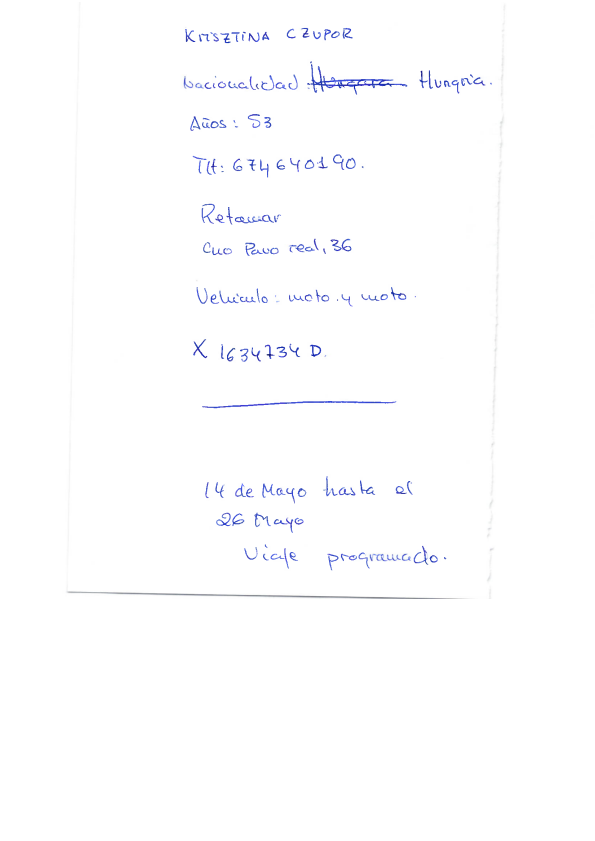 KRISZTINA CZUPOR
Nacionalidad: Hungara Hungria.
Años: 53
Tlf: 674640190.
Retamar
Cno Pavo real, 36
Vehiculo: moto y moto.
X 1634734 D.
14 de Mayo hasta el
26 Mayo
Viaje programado.